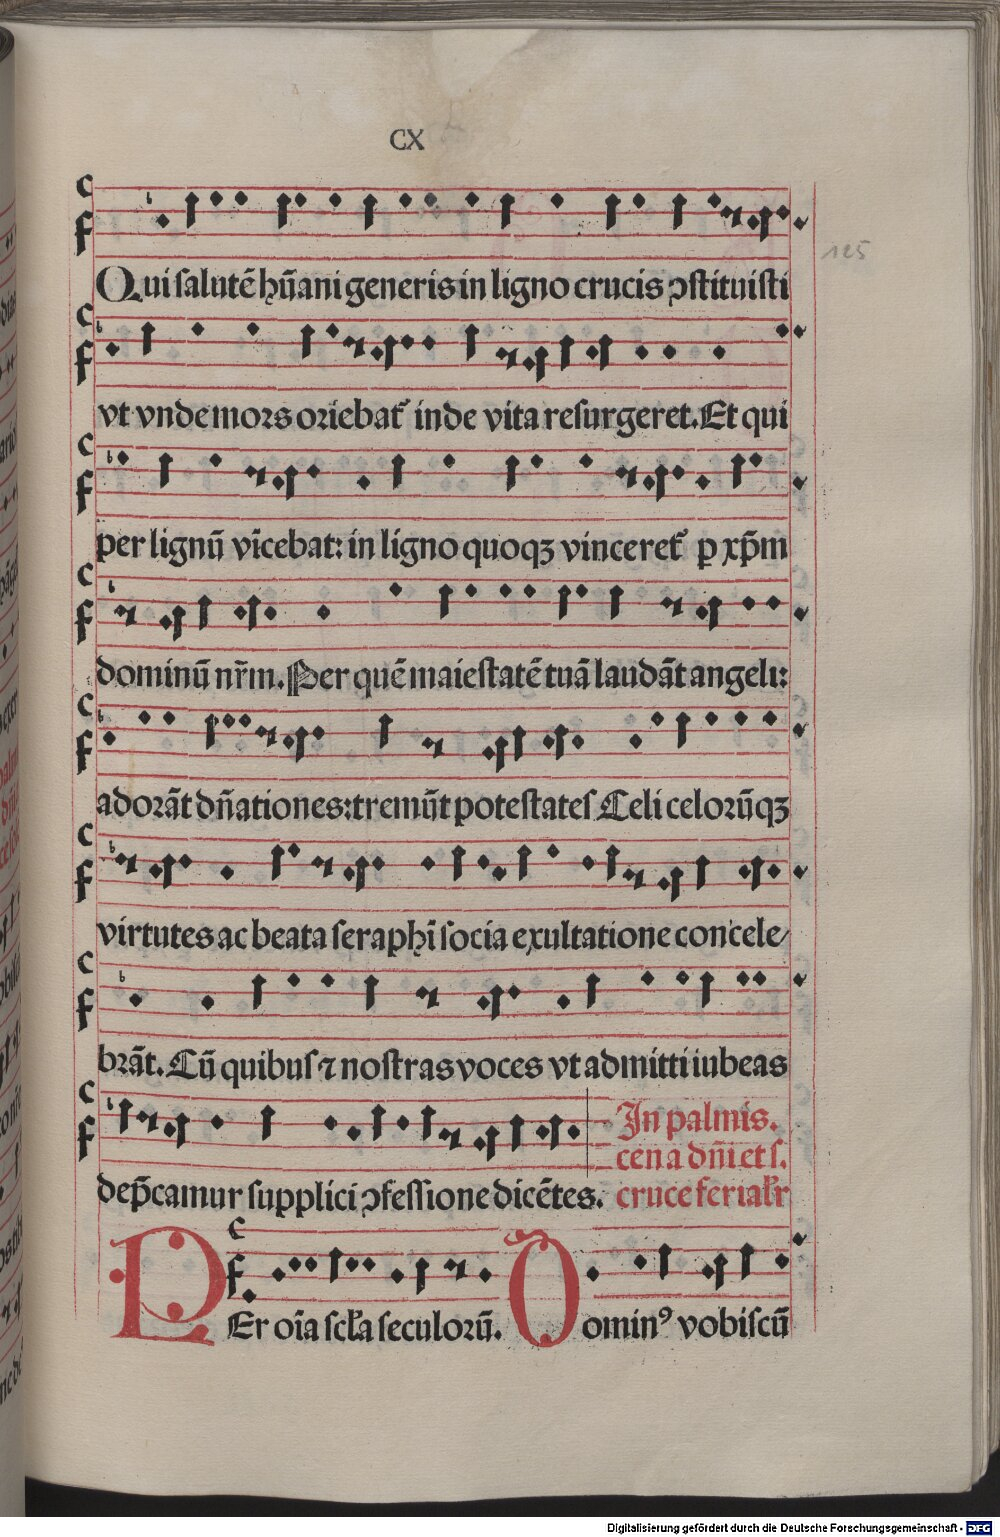 CX
125
Qui salutē hūani generis in ligno crucis ↄstituisti
vt vnde mors oriebat᷑ inde vita resurgeret. Et qui
per lignū vīcebat: in ligno quoqꝫ vinceret᷑ ꝑ xp̄m
dominū nr̄m. Per quē maiestatē tuā laudāt angeli:
adorāt dn̄ationes: tremūt potestates Celi celorūqꝫ
virtutes ac beata seraphī socia exultatione concele/
brāt. Cū quibus ⁊ nostras voces vt admitti iubeas
dep̄camur supplici ↄfessione dicētes.
In palmis.
cena dn̄i et s.
cruce ferial᷑r
PEr oīa scl̄a seculorū. Dominꝰ vobiscū
Digitalisierung gefördert durch die Deutsche Forschungsgemeinschaft - DFG